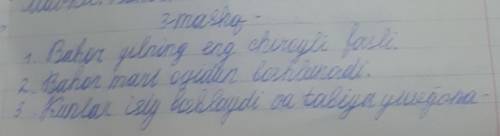 3-mashq.
1. Bahor yilning eng chiroyli fasli.
2. Bahor mart oyidan boshlanadi.
3. Kunlar isiy boshlaydi va tabiya